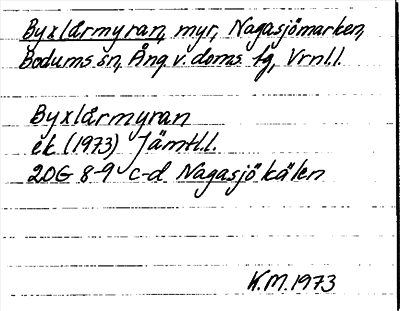 Byxlårmyran, myr, Nagasjömarken,
Bodums sn, Ång v. doms tg, Vrnl.l.
Byxlårmyran
ek (1973) Jämtl.l.
20G 8-9 c-d Nagasjökälen
K.M. 1973